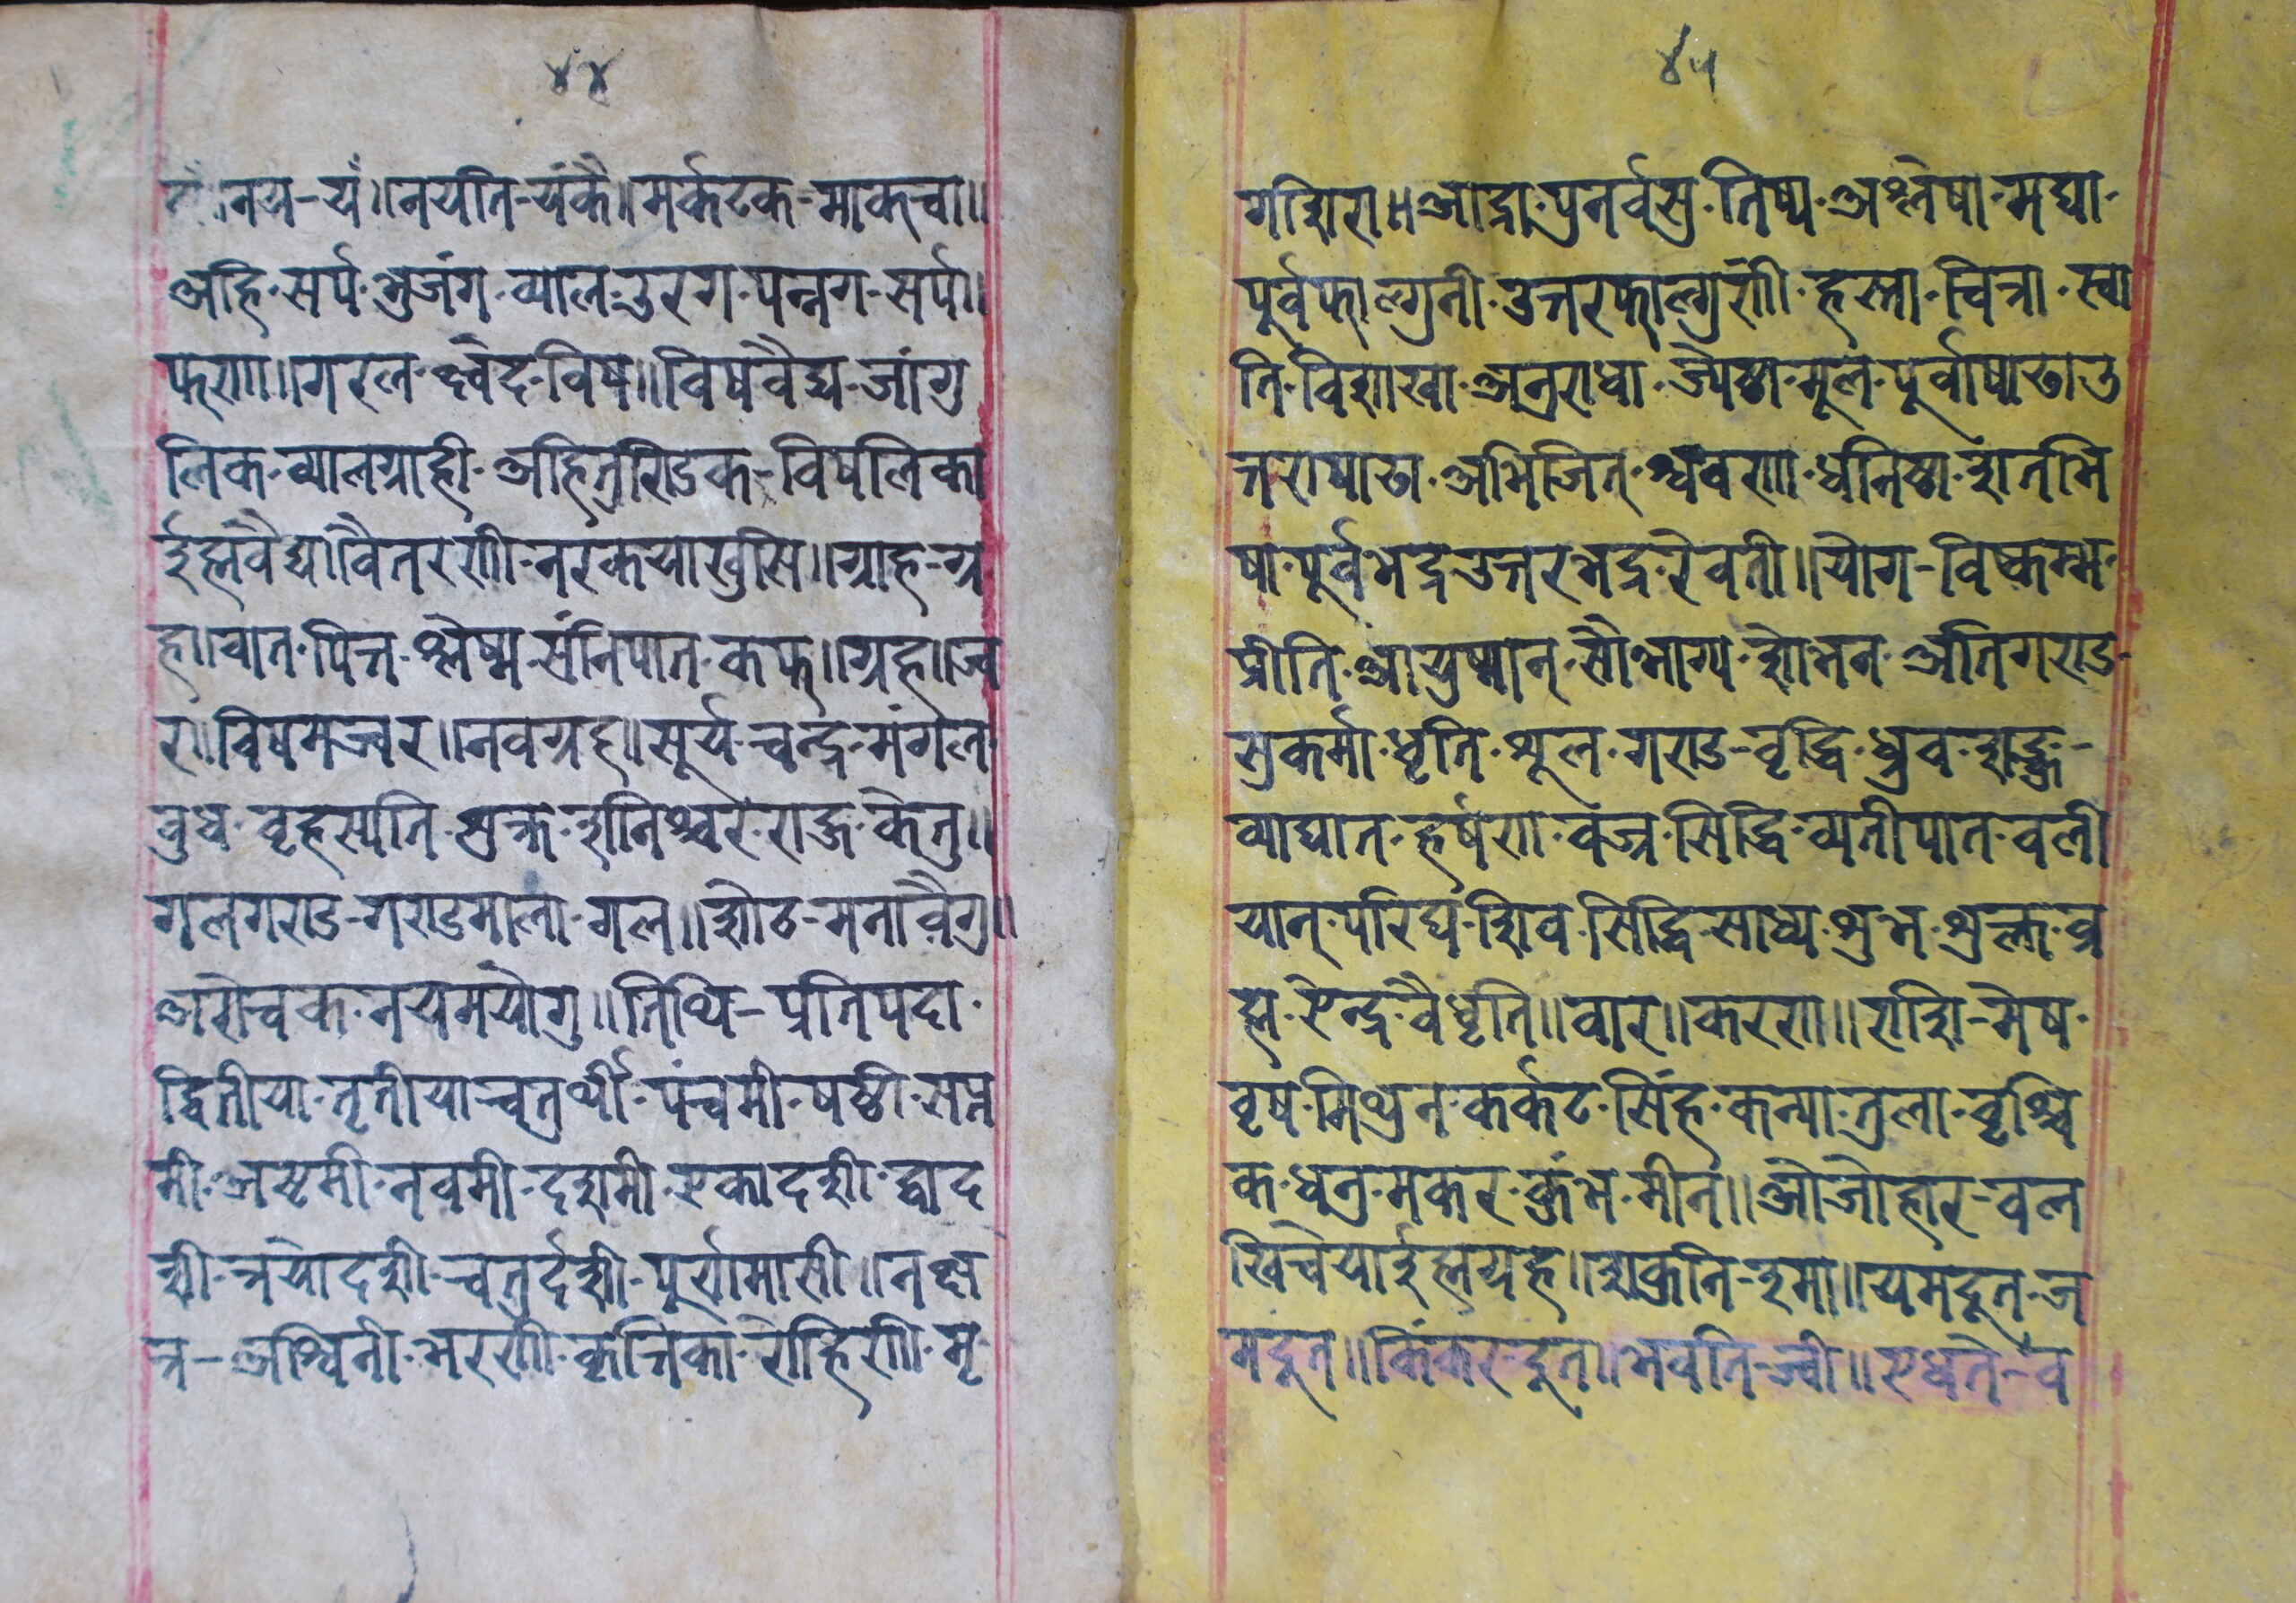 ४४
नय-यँ॥नयति-यंकै॥मर्कटक-माकचा॥
अहि-सर्प-भुजंग-व्याल-उरग-पन्नग-सर्प॥
फणा॥गरल-क्ष्वेद-विष॥विषवैद्य-जांगु
लिक-व्यालग्राही-अहितुण्डिक-विषलिका
ईह्मवैद्य॥वैतरणी-नरकयाखुसि॥ग्राह-ग्र
ह॥वात-पित्त-श्लेष्म-संनिपात-कफ॥ग्रह॥ज्व
र॥विषमज्वर॥नवग्रह॥सूर्य-चन्द्र-मंगल
वुध-वृहस्पति-शुक्र-शनिश्चर-राहु-केतु॥
गलगण्ड-गण्डमाला-गल॥शोठ-मनावैगु॥
अरोचक-नयमयोगु॥तिथि-प्रतिपदा-
द्वितीया-तृतीया-चतुर्थी-पंचमी-षष्ठी-सप्त
मी-अष्टमी-नवमी-दशमी-एकादशी-द्वाद
शी-त्रयोदशी-चतुर्दशी-पूर्णमासी॥नक्ष
त्र-अश्विनी-भरणी-कृत्तिका-रोहिणी-मृ
४५
गशिरा॥आर्द्रा-पुनर्वसु-तिष्य-अश्लेषा-मघा-
पुर्वफाल्गुनी-उत्तरफाल्गुणी-हस्ता-चित्रा-स्वा
ति-विशाखा-अनुराधा-ज्येष्ठा-मूल-पूर्वाषाढा-उ
त्तराषाढा-अभिजित्-श्रवणा-धनिष्ठा-शतभि
षा-पूर्वभद्र-उत्तरभद्र-रेवती॥योग-विष्कम्भ-
प्रीति-आयुष्मान्-सौभाग्य-शोभन-अतिगण्ड-
सुकर्मा-धृति-शूल-गण्ड-वृद्धि-ध्रुव-
व्याघात-हर्षणा-वज्र-सिद्धि-व्यतीपात-वली
यान्-परिघं-शिव-सिद्धि-साध्य-शुभ-शुक्ल-व्र
ह्म-ऐन्द्र-वैधृति॥वार॥करण॥राशि-मेष-
वृष-मिथुन-कर्कट-सिंह-कन्या-तुला-वृश्चि
क-धनु-मकर-कुंभ-मीन॥ओजोहार-वल
खिचेयाईह्मग्रह॥शकुनि-इमा॥यमदूत-ज
मदूत॥किंकर-दूत॥भवति-ज्वी॥एधते-व